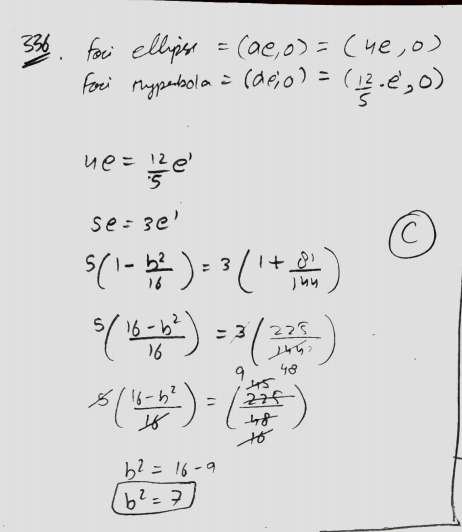 336. foci ellipse = (ae, 0) = (4e, 0)
foci hyperbola = (ae', 0) = (12/5 . e', 0)
4e = 12/5 e'
5e = 3e'
5(1 - b²/16) = 3(1 + 81/144)
C
5((16 - b²)/16) = 3(225/144)
48
5((16 - b²)/16) = (225/48)
9 45
16
b² = 16 - 9
b² = 7